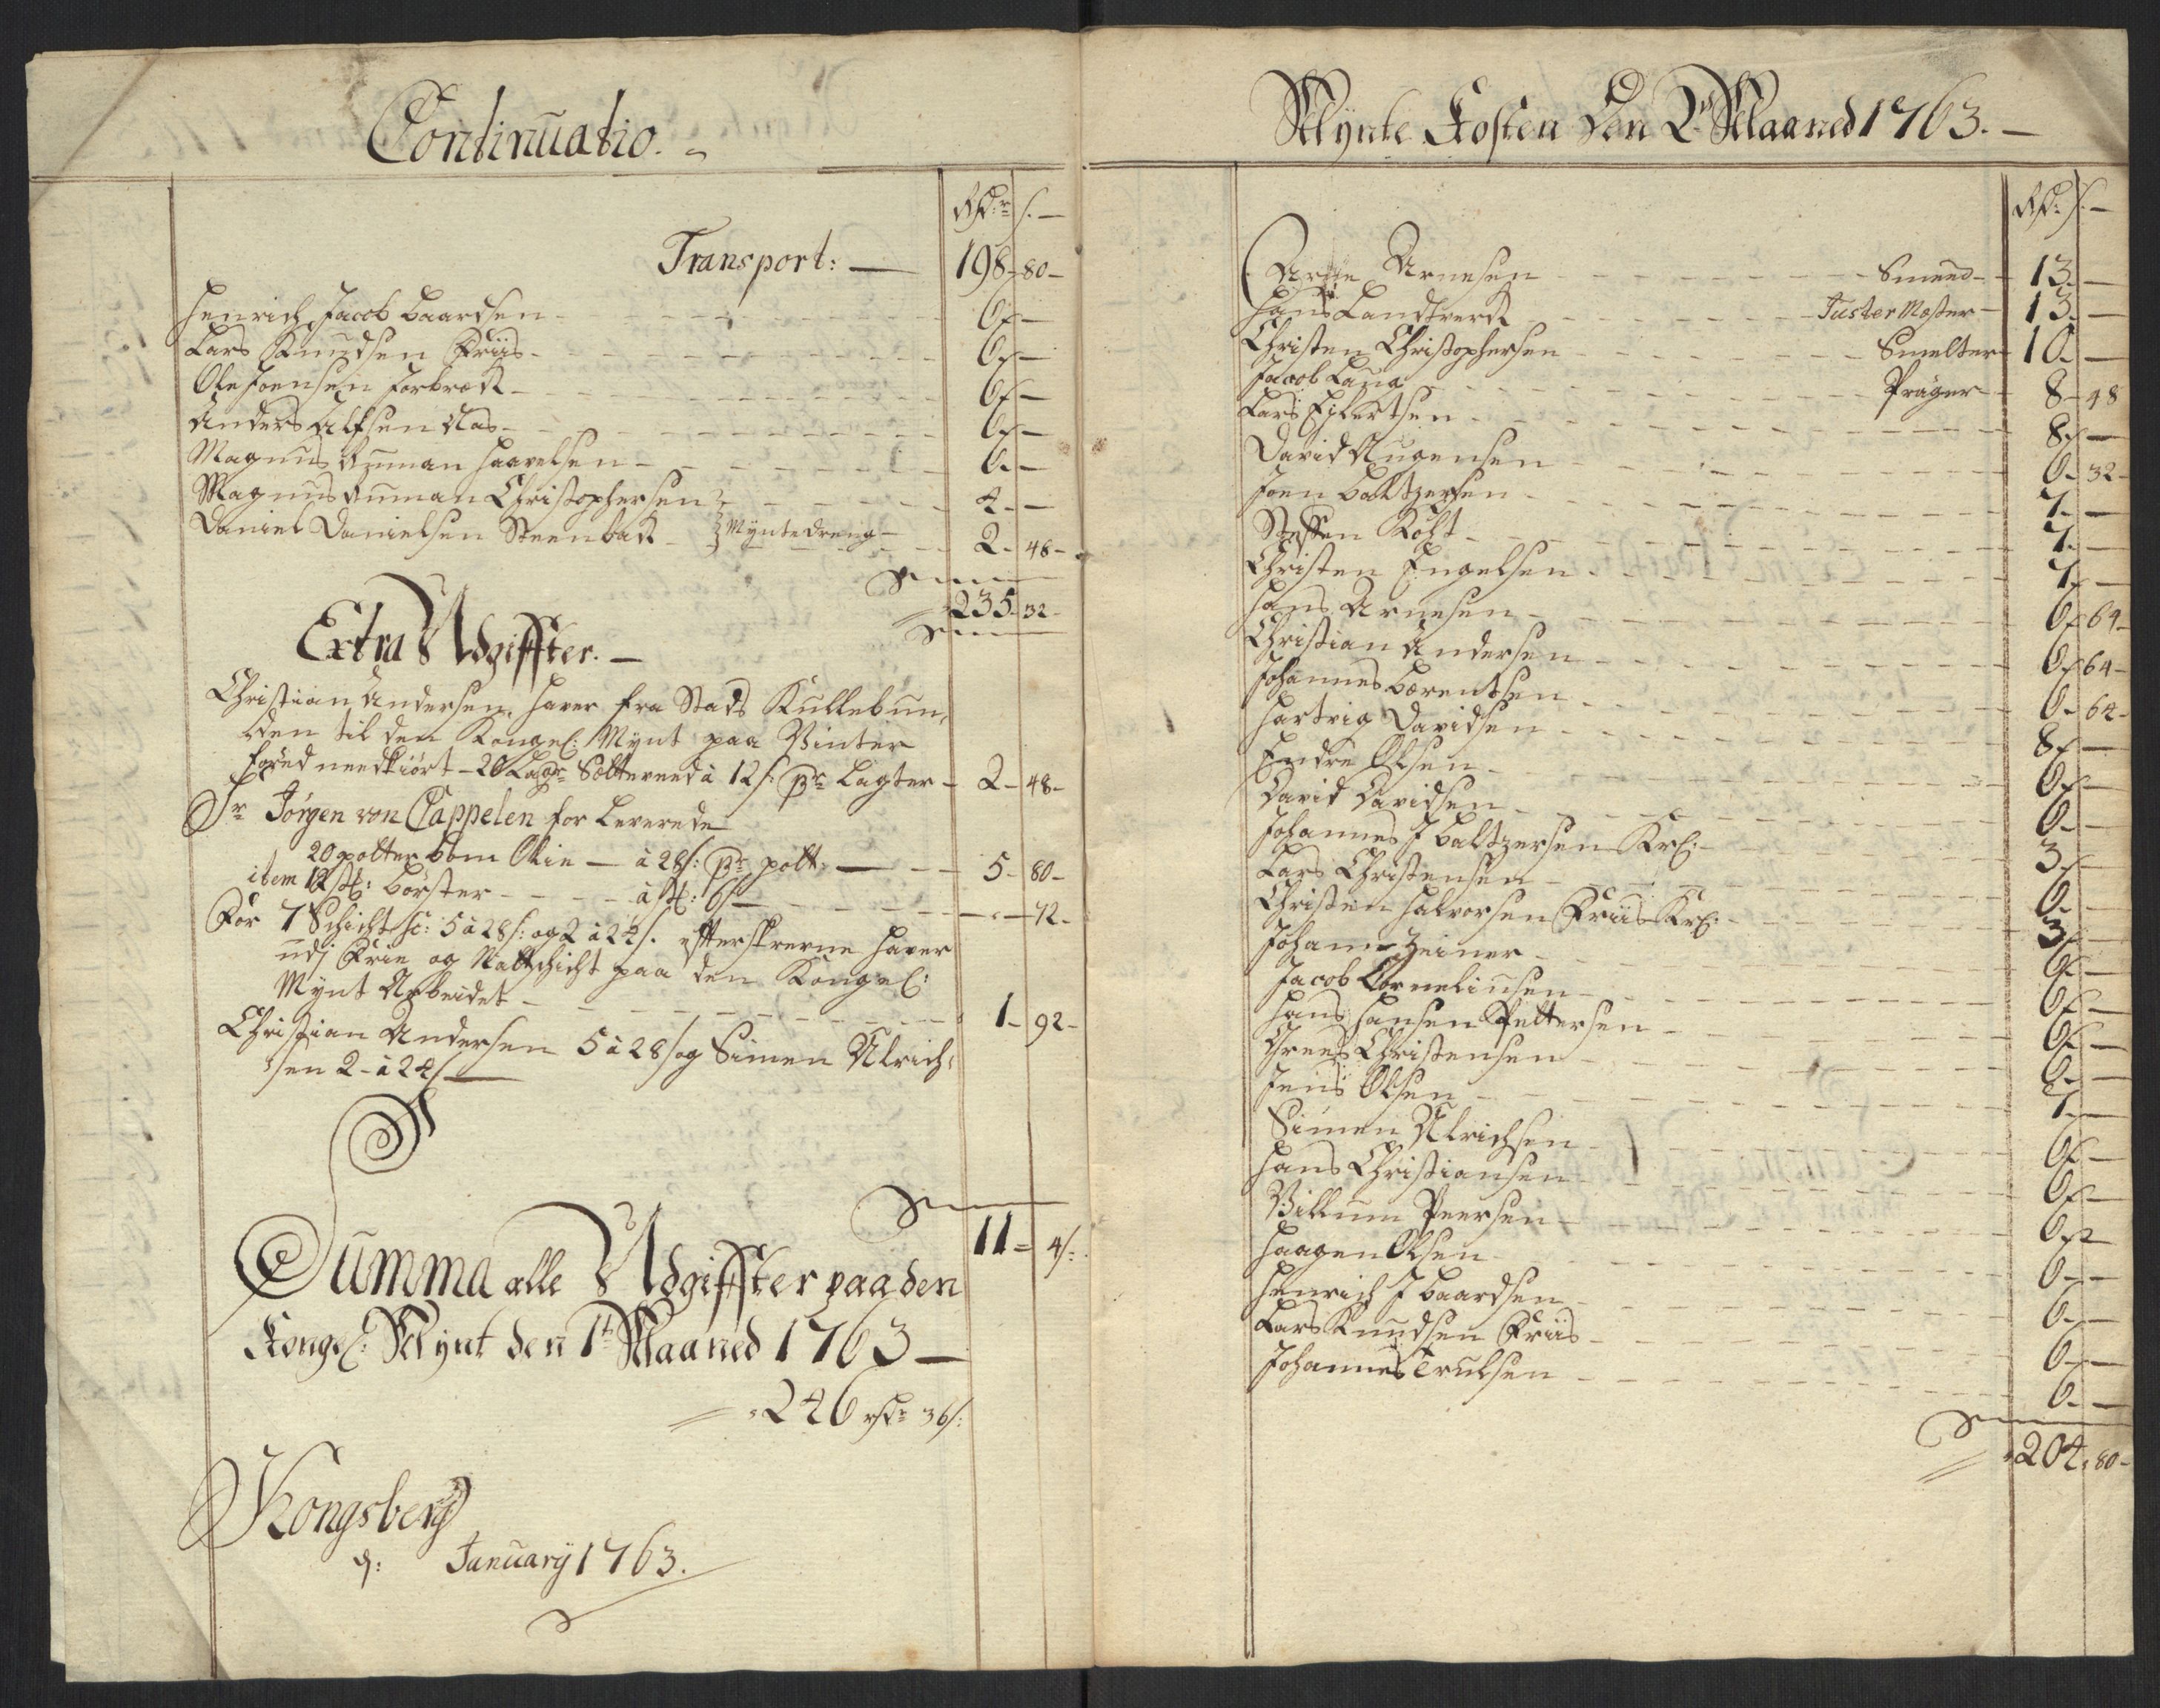 Continuatio.
Rdr s.
Transport: — 198 - 80 -
Henrich Jacob Baardsen - 6 -
Lars Knudsen Friis - 6 -
Ole Joensen - 6 -
Anders Alfsen Aas - 6 -
Magnus Haavelsen - 6 -
Magnus Christophersen - 4 -
Daniel Danielsen Steenbak - Mynte dreng - 2 - 48 -
235 - 32 -
Extra Udgiffter. —
Christian Andersen, haver fra Stads Kullebun,
den til den Kongel: Mynt paa Vinter
Føred needkiørt - 20 Lagr Sætteveed à 12 s: pr Lagter - 2 - 48 -
Sr Jörgen von Cappelen for Leverede
20 potter bom Olie — à 28 s: pr pott: — 5 - 80 -
item 12 st: börster - à st: 6 s — 72 -
For 7 Schicht sc: 5 à 28 s: og 2 à 24 s. efterskrevne haver
udj Frie og Nattschicht paa den Kongel:
Mynt Arbeidet - 1 - 92 -
Christian Andersen 5 à 28 s og Simen Ulrich,
sen 2 - à 24 s —
11 = 4 s:
Summa alle Udgiffter paa den
Kongel: Mynt den 1t Maaned 1763 —
246 rdr 36 s:
Kongsberg
d: January 1763.
Mynte Kosten den 2 Maaned 1763. —
Rdr s. —
Arne Arnesen - Smeed - 13 -
Hans Landtverk - Juster Mester - 13 -
Christen Christophersen - Smelter - 10 -
Jacob Laug - Präger - 8 - 48
Lars Eilertsen - 8 -
David Augensen - 6 - 32 -
Joen Baltzersen - 7 -
Steffen Kolt - 7 -
Christen Engelsen - 7 -
Hans Arnesen - 6 - 64 -
Christian Andersen - 6 - 64 -
Johannes Berentsen - 6 - 64 -
Hartvig Davidsen - 8 -
Endre Olsen - 6 -
David Davidsen - 6 -
Johannes J Baltzersen Krl: - 3 -
Lars Christensen - 6 -
Christen Halvorsen Friis Krl: - 3 -
Johan Zeiner - 6 -
Jacob Corneliusen - 6 -
Hans Hansen Pettersen - 6 -
Grees Christensen - 6 -
Jens Olsen - 7 -
Simen Ulrichsen - 6 -
Hans Christiansen - 6 -
Villum Peersen - 6 -
Haagen Olsen - 6 -
Henrich J Baardsen - 6 -
Lars Knudsen Friis - 6 -
Johannes Trulsen - 6 -
204 - 80 -